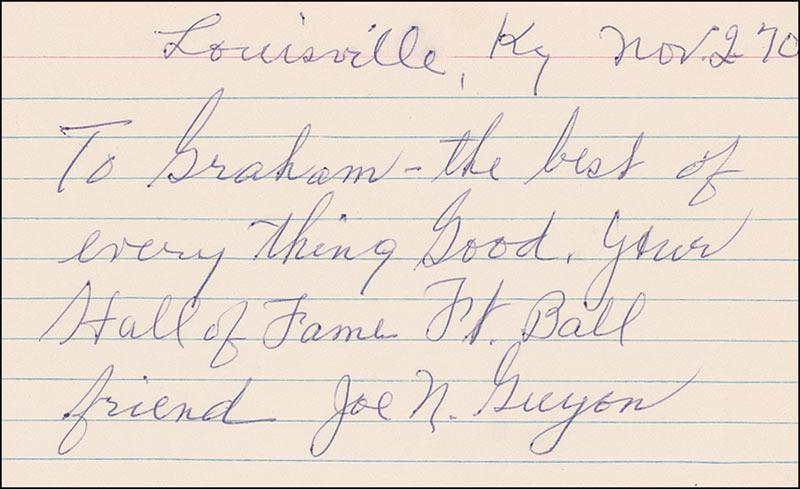 Louisville, Ky Nov. 2 70
To Graham - the best of
every thing Good. Your
Hall of Fame Ft. Ball
friend Joe N. Guyon